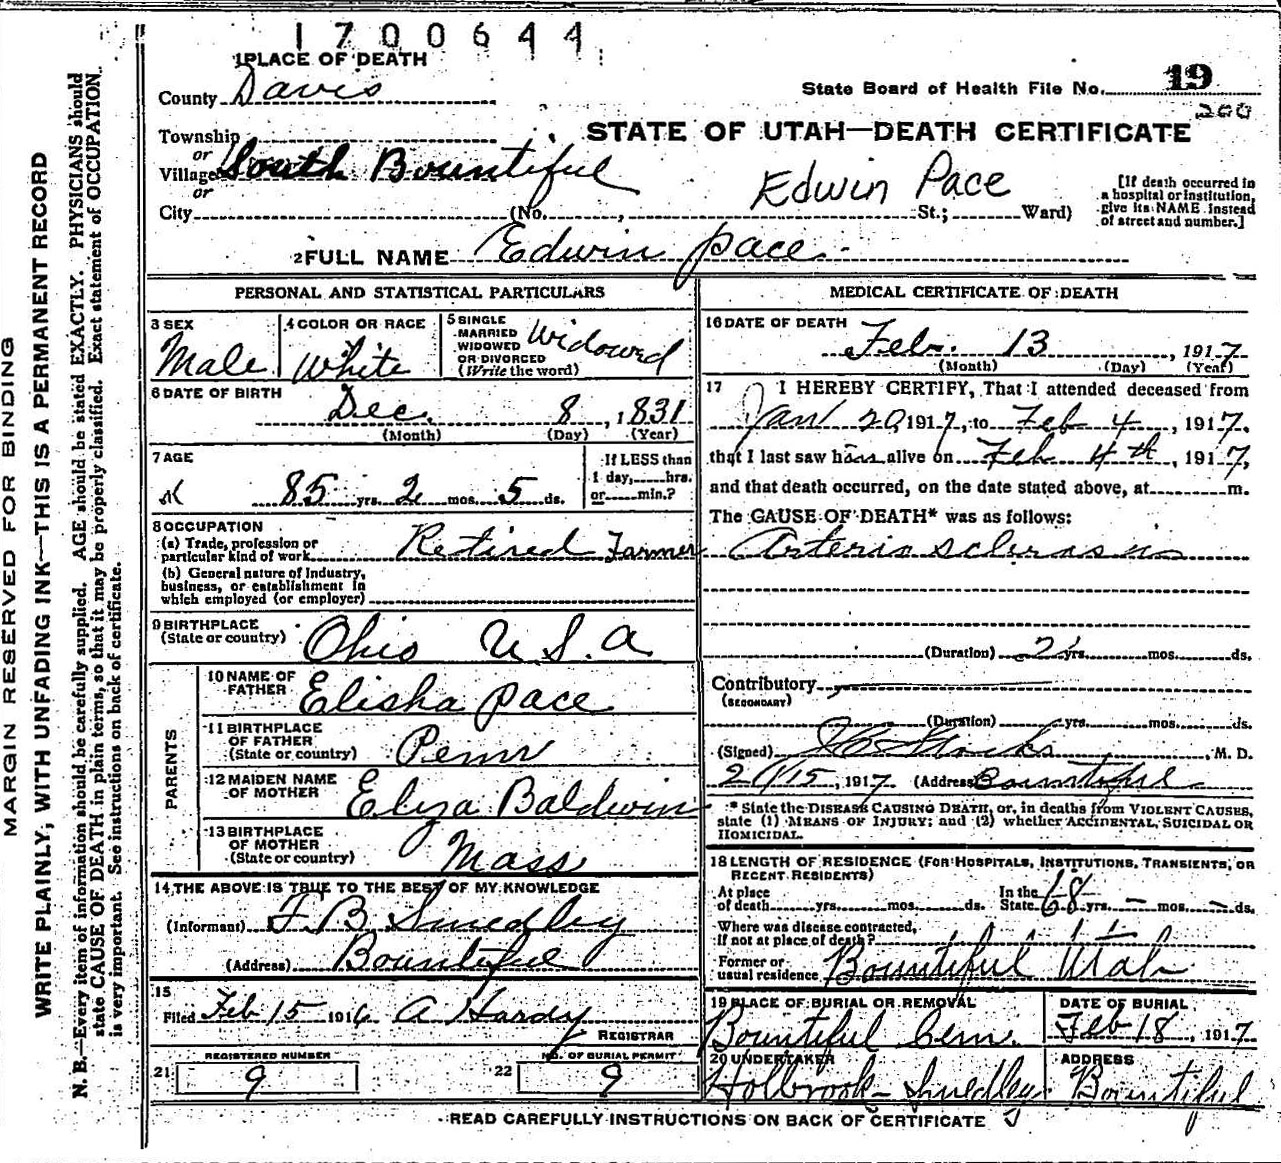 1700644
1 PLACE OF DEATH
County Davis
State Board of Health File No. 19
200
Township
or
Village South Bountiful
or
City (No. , St.; Ward)
STATE OF UTAH—DEATH CERTIFICATE
Edwin Pace
[If death occurred in
a hospital or institution,
give its NAME instead
of street and number.]
2 FULL NAME Edwin Pace
PERSONAL AND STATISTICAL PARTICULARS
3 SEX Male
4 COLOR OR RACE White
5 SINGLE
MARRIED
WIDOWED
OR DIVORCED
(Write the word)
Widowed
6 DATE OF BIRTH
Dec. 8, 1831
(Month) (Day) (Year)
7 AGE
85 yrs. 2 mos. 5 ds.
If LESS than
1 day, hrs.
or min.?
8 OCCUPATION
(a) Trade, profession or
particular kind of work Retired Farmer
(b) General nature of Industry,
business, or establishment in
which employed (or employer)
9 BIRTHPLACE
(State or country) Ohio U.S.A
PARENTS
10 NAME OF
FATHER Elisha Pace
11 BIRTHPLACE
OF FATHER
(State or country) Penn
12 MAIDEN NAME
OF MOTHER Eliza Baldwin
13 BIRTHPLACE
OF MOTHER
(State or country) Mass
14 THE ABOVE IS TRUE TO THE BEST OF MY KNOWLEDGE
(Informant) F. B. Smedley
(Address) Bountiful
15
Filed Feb 15 1916 A Hardy
REGISTRAR
REGISTERED NUMBER
21 9
NO. OF BURIAL PERMIT
22 9
MEDICAL CERTIFICATE OF DEATH
16 DATE OF DEATH
Feb. 13, 1917
(Month) (Day) (Year)
17 I HEREBY CERTIFY, That I attended deceased from
Jan 20 1917, to Feb 4, 1917,
that I last saw him alive on Feb 4th, 1917,
and that death occurred, on the date stated above, at m.
The CAUSE OF DEATH* was as follows:
Arterio sclerosis
(Duration) 2 yrs. mos. ds.
Contributory
(SECONDARY)
(Duration) yrs. mos. ds.
(Signed) M. D.
2/15, 1917 (Address) Bountiful
* State the DISEASE CAUSING DEATH, or, in deaths from VIOLENT CAUSES,
state (1) MEANS OF INJURY; and (2) whether ACCIDENTAL, SUICIDAL OR
HOMICIDAL.
18 LENGTH OF RESIDENCE (FOR HOSPITALS, INSTITUTIONS, TRANSIENTS, OR
RECENT RESIDENTS)
At place
of death yrs. mos. ds.
In the
State 68 yrs. – mos. – ds.
Where was disease contracted,
if not at place of death?
Former or
usual residence Bountiful Utah
19 PLACE OF BURIAL OR REMOVAL
Bountiful Cem.
DATE OF BURIAL
Feb 18, 1917
20 UNDERTAKER
Holbrook - Smedley
ADDRESS
Bountiful
READ CAREFULLY INSTRUCTIONS ON BACK OF CERTIFICATE
MARGIN RESERVED FOR BINDING
WRITE PLAINLY, WITH UNFADING INK—THIS IS A PERMANENT RECORD
N. B.—Every item of information should be carefully supplied. AGE should be stated EXACTLY. PHYSICIANS should
state CAUSE OF DEATH in plain terms, so that it may be properly classified. Exact statement of OCCUPATION
is very important. See instructions on back of certificate.